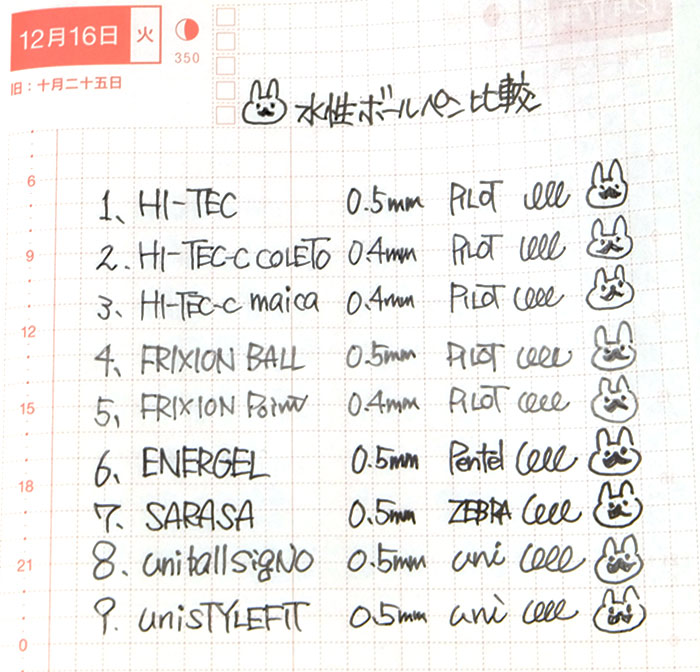 12月16日 火
350
旧:十月二十五日
水性ボールペン比較
6
1、HI-TEC 0.5mm PILOT
9
2. HI-TEC-C COLETO 0.4mm PILOT
3、HI-TEC-C maica 0.4mm PILOT
12
4、FRIXION BALL 0.5mm PILOT
15
5、FRIXION Point 0.4mm PILOT
6、ENERGEL 0.5mm Pentel
18
7. SARASA 0.5mm ZEBRA
21
8、uniball sigNO 0.5mm uni
9. uniSTYLEFIT 0.5mm uni
0